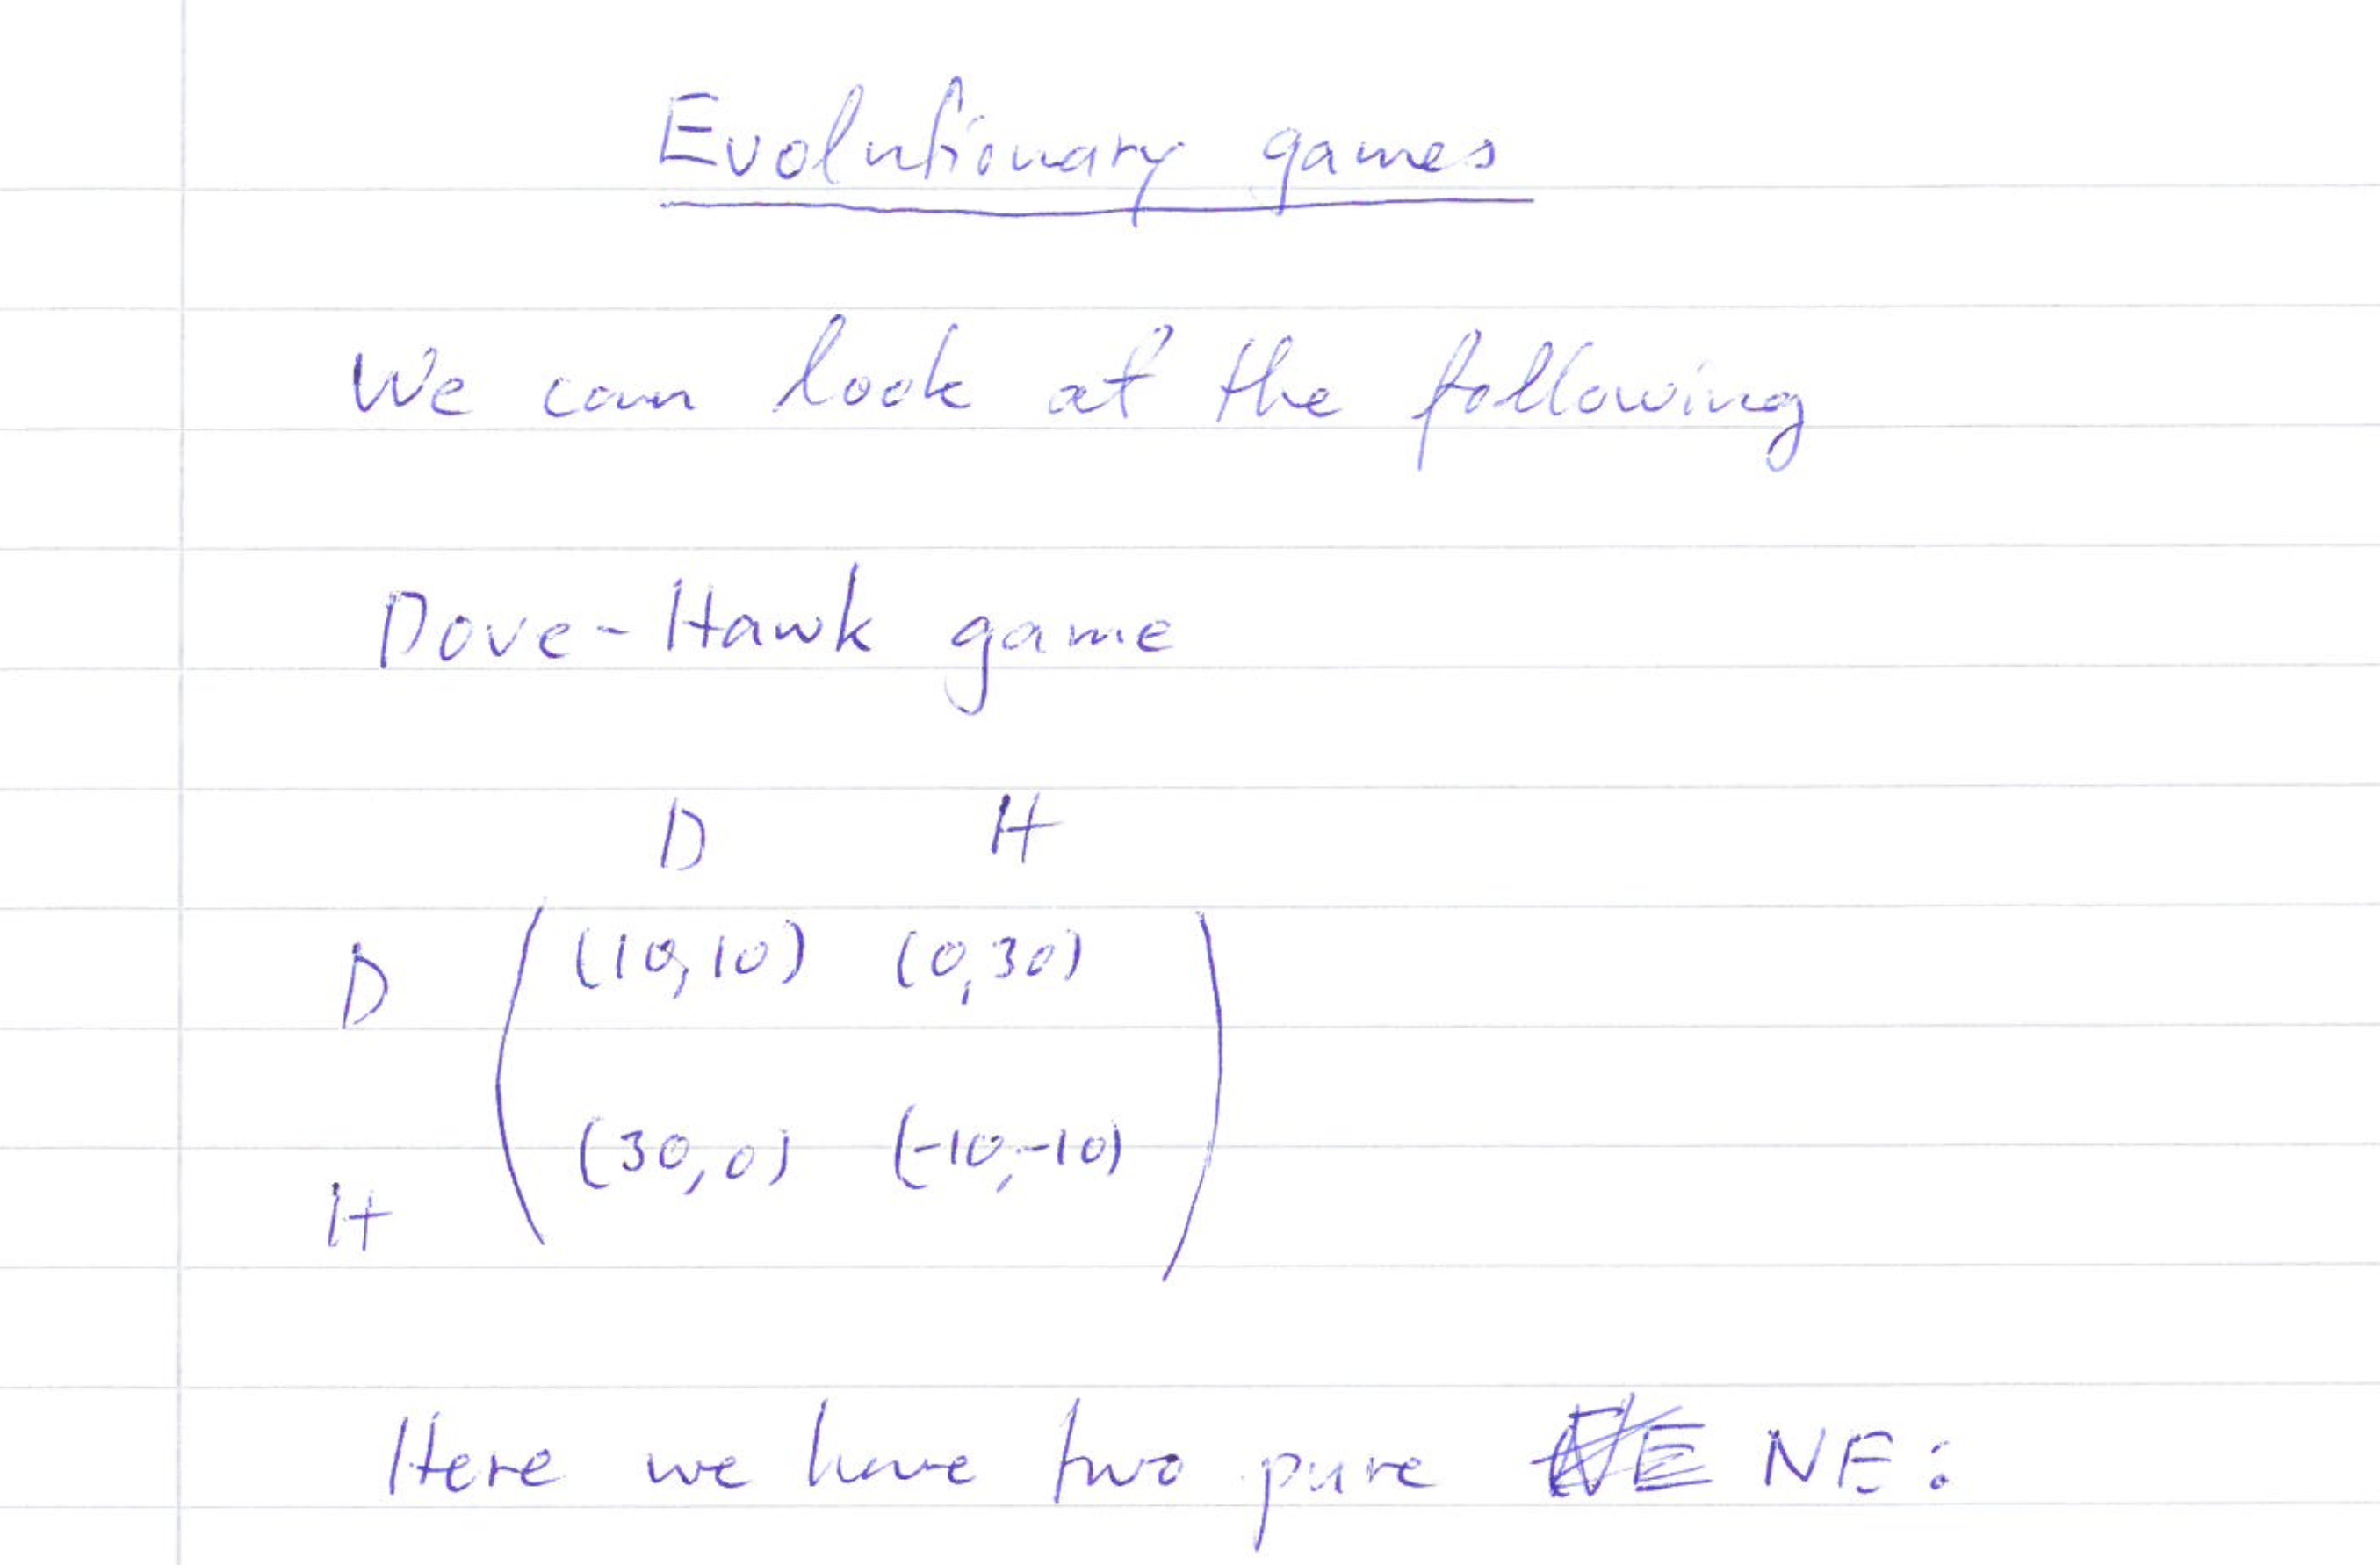 Evolutionary games
We can look at the following
Dove-Hawk game
D H
D (10,10) (0,30)
H (30,0) (-10,-10)
Here we have two pure NE: